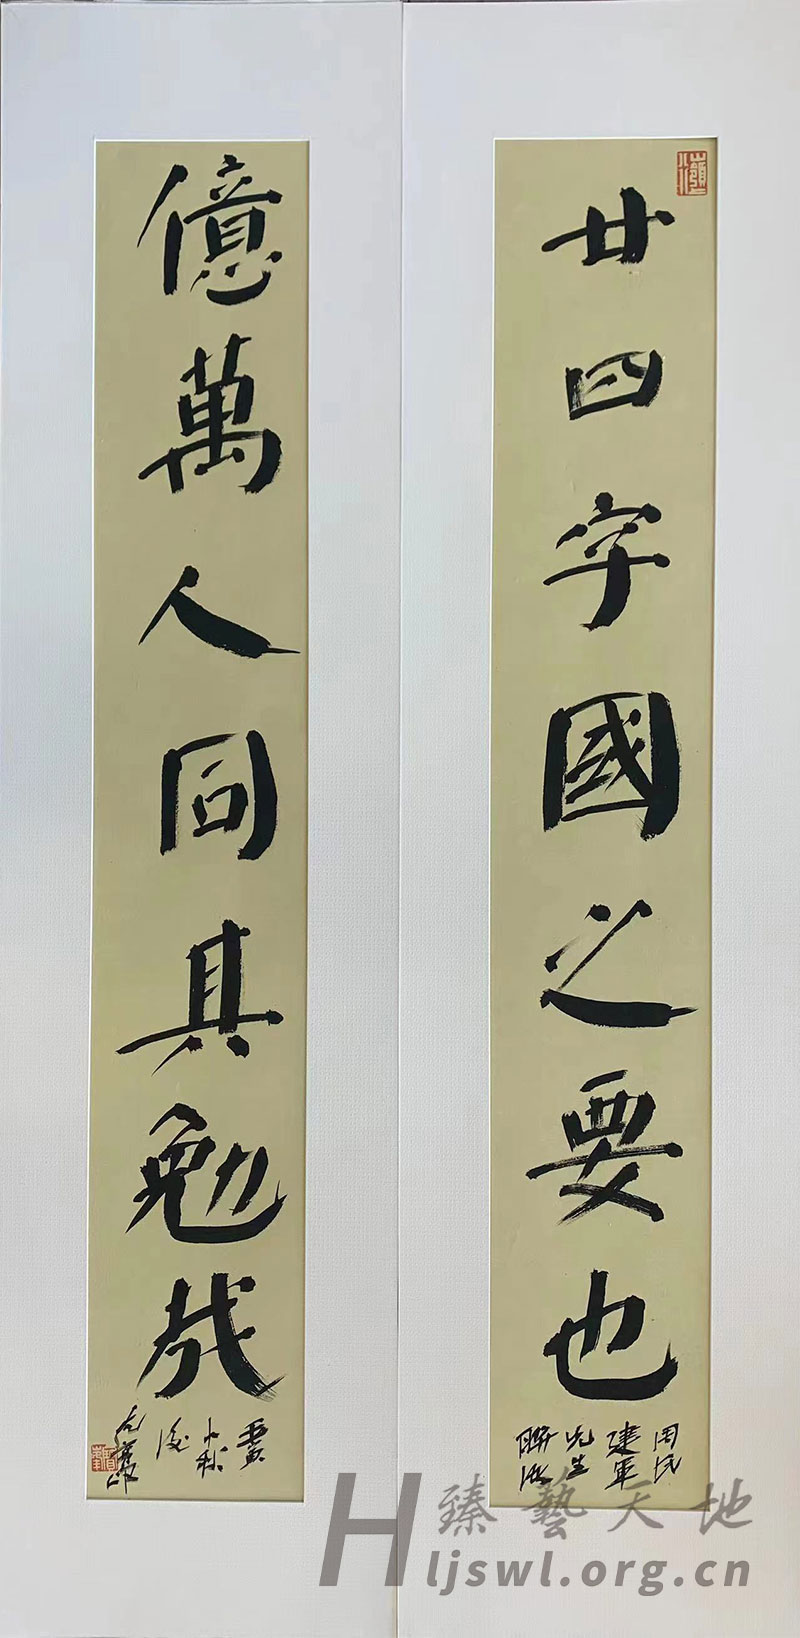 廿四字國之要也
周氏
建軍
先生
聯語
億萬人同具勉哉
壬寅
小秋
後
臻藝天地
Hljswl.org.cn